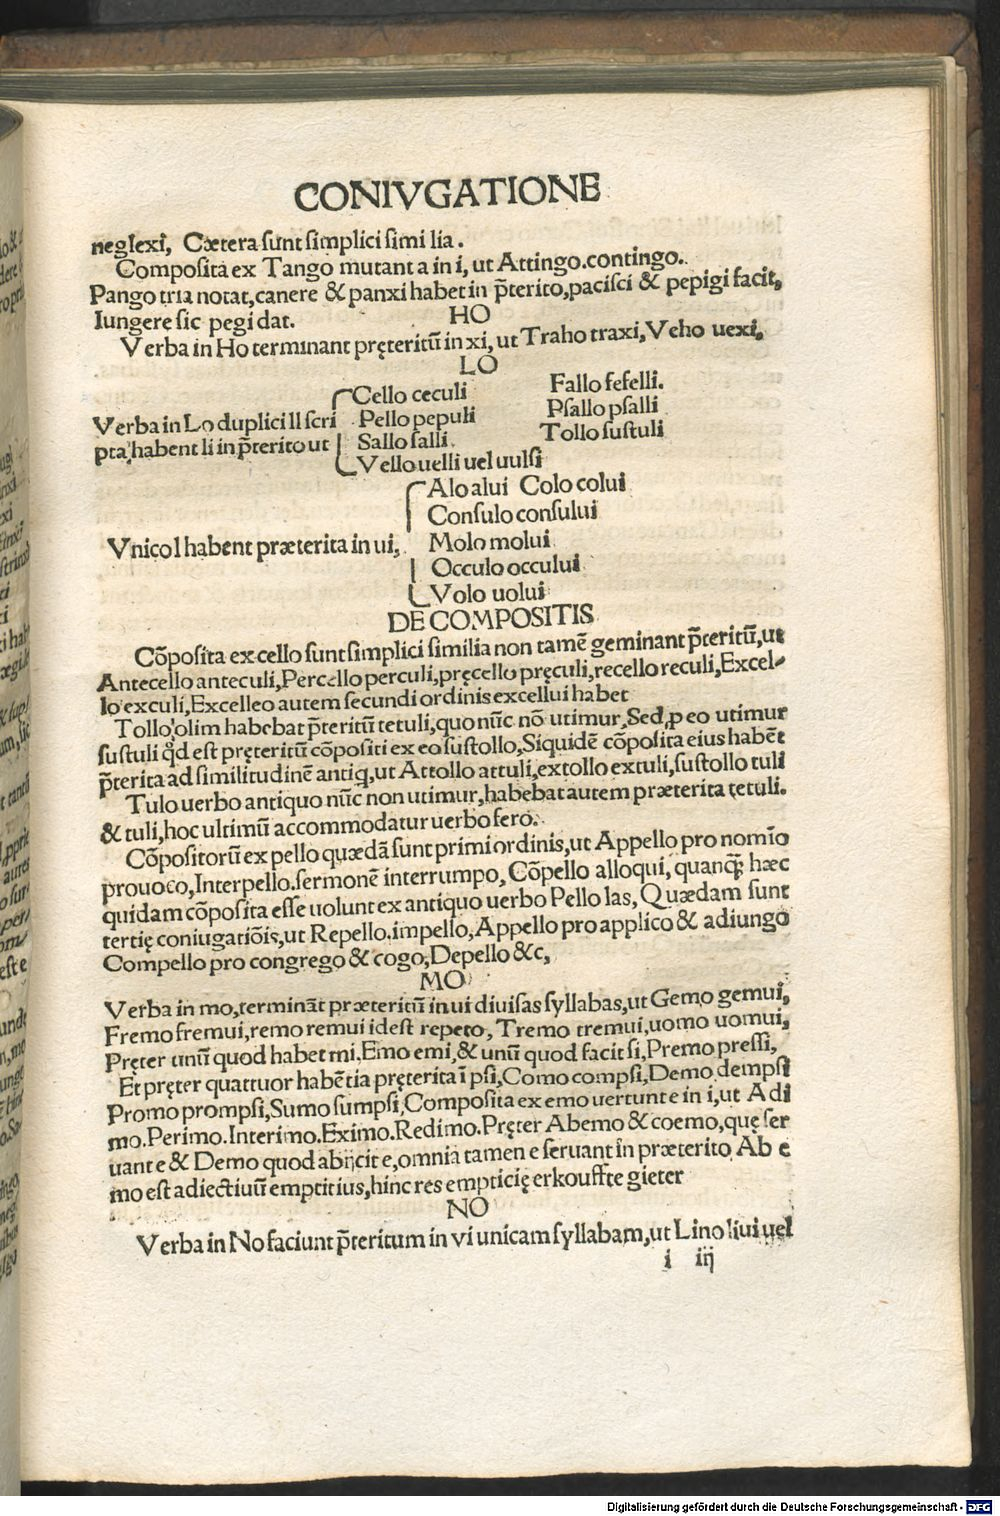 CONIVGATIONE
neglexi, Cætera sunt simplici simi lia.
Composita ex Tango mutant a in i, ut Attingo.contingo.
Pango tria notat, canere & panxi habet in p̄terito, pacisci & pepigi facit,
Iungere sic pegi dat.
HO
Verba in Ho terminant pręteritū in xi, ut Traho traxi, Veho uexi,
LO
Cello ceculi Fallo fefelli.
Verba in Lo duplici ll scri Pello pepuli Psallo psalli
pta habent li in p̄terito ut Sallo salli Tollo sustuli
Vello uelli uel uulsi
Alo alui Colo colui
Consulo consului
Vnico l habent præterita in ui, Molo molui
Occulo occului
Volo uolui
DE COMPOSITIS
Cōposita ex cello sunt simplici similia non tamē geminant p̄teritū, ut
Antecello anteculi, Percello perculi, pręcello pręculi, recello reculi, Excel-
lo exculi, Excelleo autem secundi ordinis excellui habet
Tollo olim habebat p̄teritū tetuli, quo nūc nō utimur, Sed ꝓ eo utimur
sustuli qd̛ est pręteritū cōpositi ex eo sustollo, Siquidē cōposita eius habēt
p̄terita ad similitudinē antiq, ut Attollo attuli, extollo extuli, sustollo tuli
Tulo uerbo antiquo nūc non utimur, habebat autem præterita tetuli.
& tuli, hoc ultimū accommodatur uerbo fero.
Cōpositorū ex pello quædā sunt primi ordinis, ut Appello pro nomīo
prouoco, Interpello.sermonē interrumpo, Cōpello alloqui, quanꝗ̄ hæc
quidam cōposita esse uolunt ex antiquo uerbo Pello las, Quædam sunt
tertię coniugatiōis, ut Repello.impello, Appello pro applico & adiungo
Compello pro congrego & cogo, Depello &c,
MO
Verba in mo, termināt præteritū in ui diuisas syllabas, ut Gemo gemui,
Fremo fremui, remo remui idest repeto, Tremo tremui, uomo uomui,
Pręter unū quod habet mi, Emo emi, & unū quod facit si, Premo pressi,
Et pręter quattuor habētia pręterita ī psi, Como compsi, Demo dempsi
Promo prompsi, Sumo sumpsi, Composita ex emo uertunt e in i, ut Adi
mo.Perimo.Interimo.Eximo.Redimo.Pręter Abemo & coemo, quę ser
uant e & Demo quod abijcit e, omnia tamen e seruant in præterito Ab e
mo est adiectiuū emptitius, hinc res empticię erkouffte gieter
NO
Verba in No faciunt p̄teritum in vi unicam syllabam, ut Lino liui uel
i iij
Digitalisierung gefördert durch die Deutsche Forschungsgemeinschaft - DFG